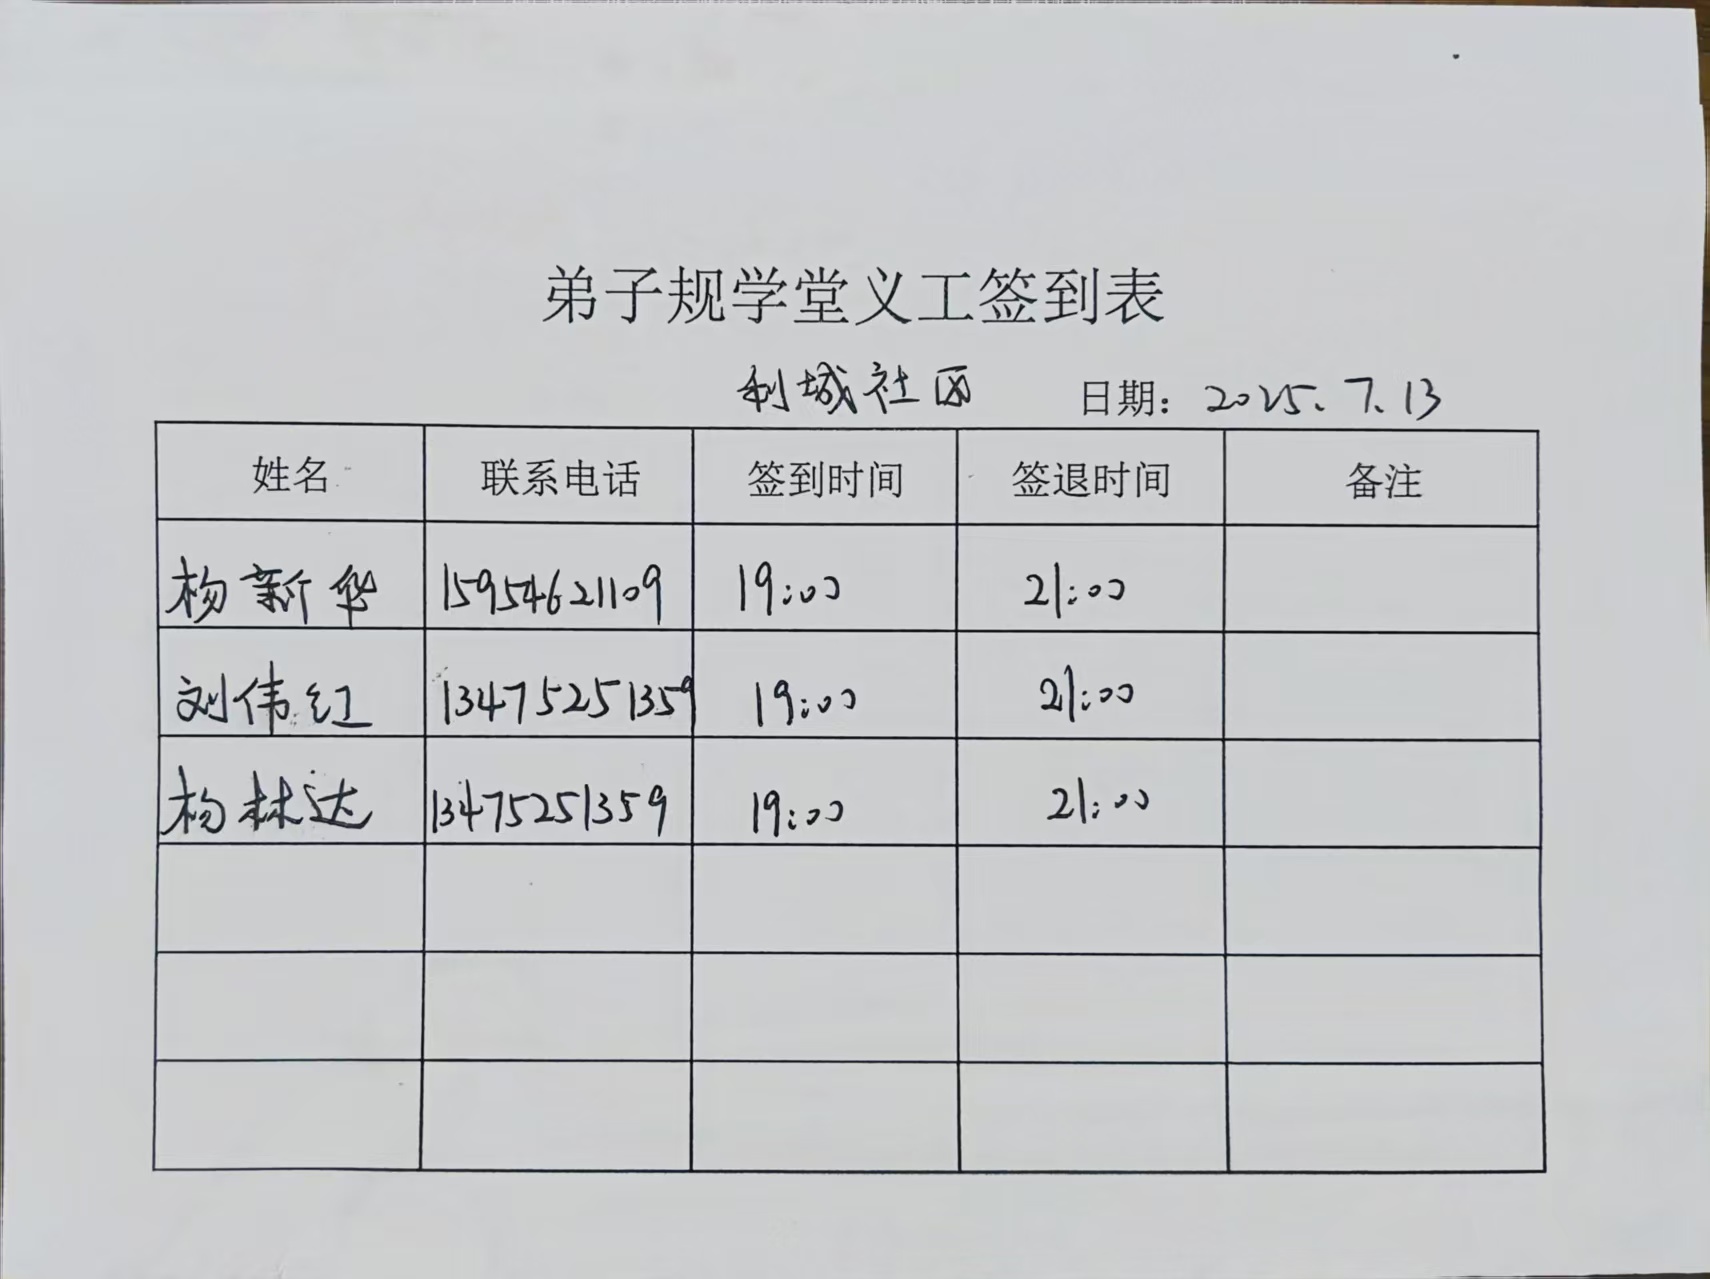 弟子规学堂义工签到表
利城社区 日期：2025.7.13
姓名 联系电话 签到时间 签退时间 备注
杨新华 15954621109 19:00 21:00
刘伟红 13475251359 19:00 21:00
杨林达 13475251359 19:00 21:00